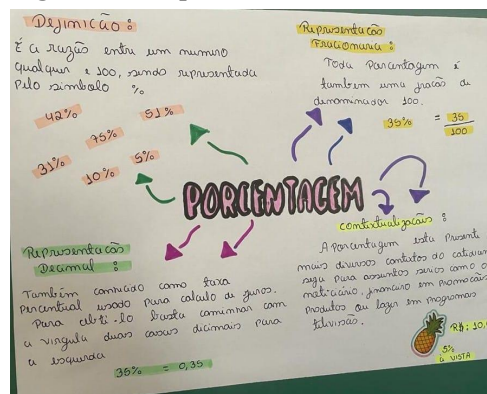 Definicão:
É a razão entre um numero
qualquer e 100, sendo representada
pelo simbolo %
42% 51%
75%
31% 10% 5%
Representacão
Fracionaria:
Toda Porcentagem é
também uma fracão de
denominador 100.
35% = 35/100
PORCENTAGEM
Representacão
Decimal:
Também conhecido como taxa
percentual usado para calculo de juros.
Para obti-lo basta caminhar com
a virgula duas casas dicimais para
a esquerda
35% = 0,35
contextualização:
A Porcentagem esta Presente
mais diversos contextos do cotidian
seja para assuntos serios como o
noticiário, financeiro em Promocão
Produtos ou lazer em programas
televisão.
R$: 10,
5%
á VISTA